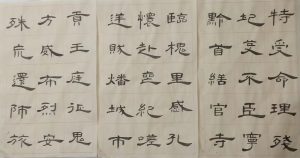 貢王庭征鬼
方威布烈安
殊荒還師旅
臨槐里感孔
懷赴喪紀嗟
逆賊燔城市
特受命理殘
圮芟不臣寧
黔首繕官寺